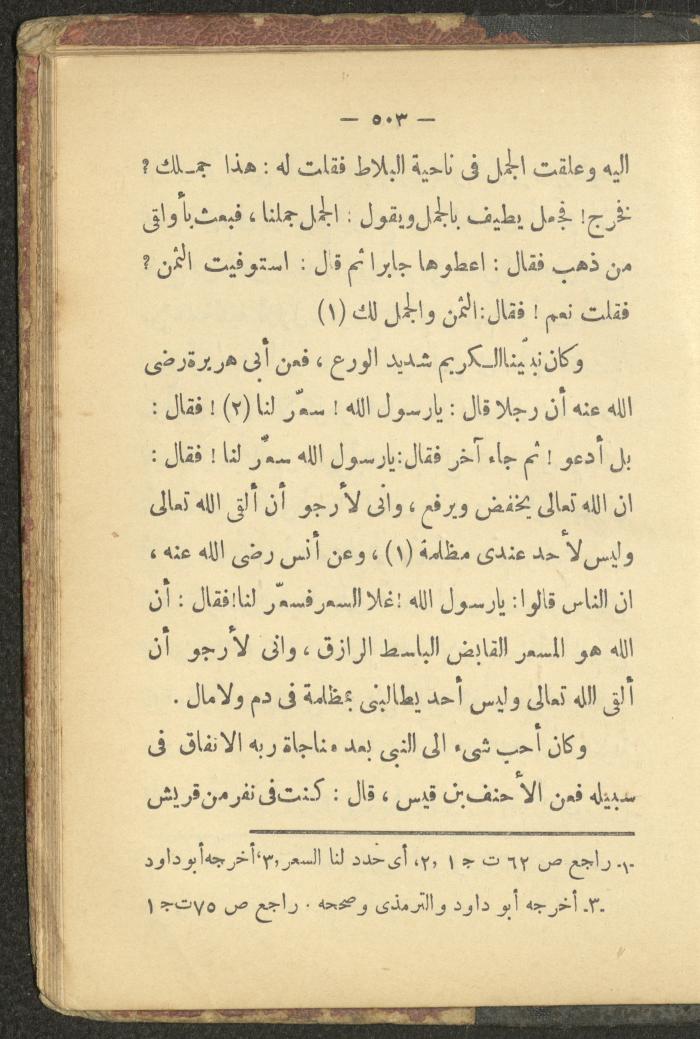 — ٥٠٣ —
اليه وعلقت الجمل فى ناحية البلاط فقلت له : هذا جمـلك ?
فخرج! فجعل يطيف بالجمل ويقول : الجمل جملنا ، فبعث بأواقى
من ذهب فقال : اعطوها جابرا ثم قال : استوفيت الثمن ?
فقلت نعم ! فقال:الثمن والجمل لك (١)
وكان نبيّنا الـكريم شديد الورع ، فعن أبى هريرة رضى
الله عنه أن رجلا قال : يارسول الله ! سعّر لنا (٢) ! فقال :
بل أدعو ! ثم جاء آخر فقال:يارسول الله سعّر لنا ! فقال :
ان الله تعالى يخفض ويرفع ، وانى لأرجو أن ألقى الله تعالى
وليس لأحد عندى مظلمة (١) ، وعن أنس رضى الله عنه ،
ان الناس قالوا: يارسول الله !غلا السعر فسعّر لنا!فقال : أن
الله هو المسعر القابض الباسط الرازق ، وانى لأرجو أن
ألقى الله تعالى وليس أحد يطالبنى بمظلمة فى دم ولا مال .
وكان أحب شىء الى النبى بعد مناجاة ربه الانفاق فى
سبيله فعن الأحنف بن قيس ، قال : كنت فى نفر من قريش
-١- راجع ص ٦٢ ت ج ١ ,٢، أى حدد لنا السعر ,٣، أخرجه أبو داود
-٣- أخرجه أبو داود والترمذى وصححه . راجع ص ٧٥ ت ج ١